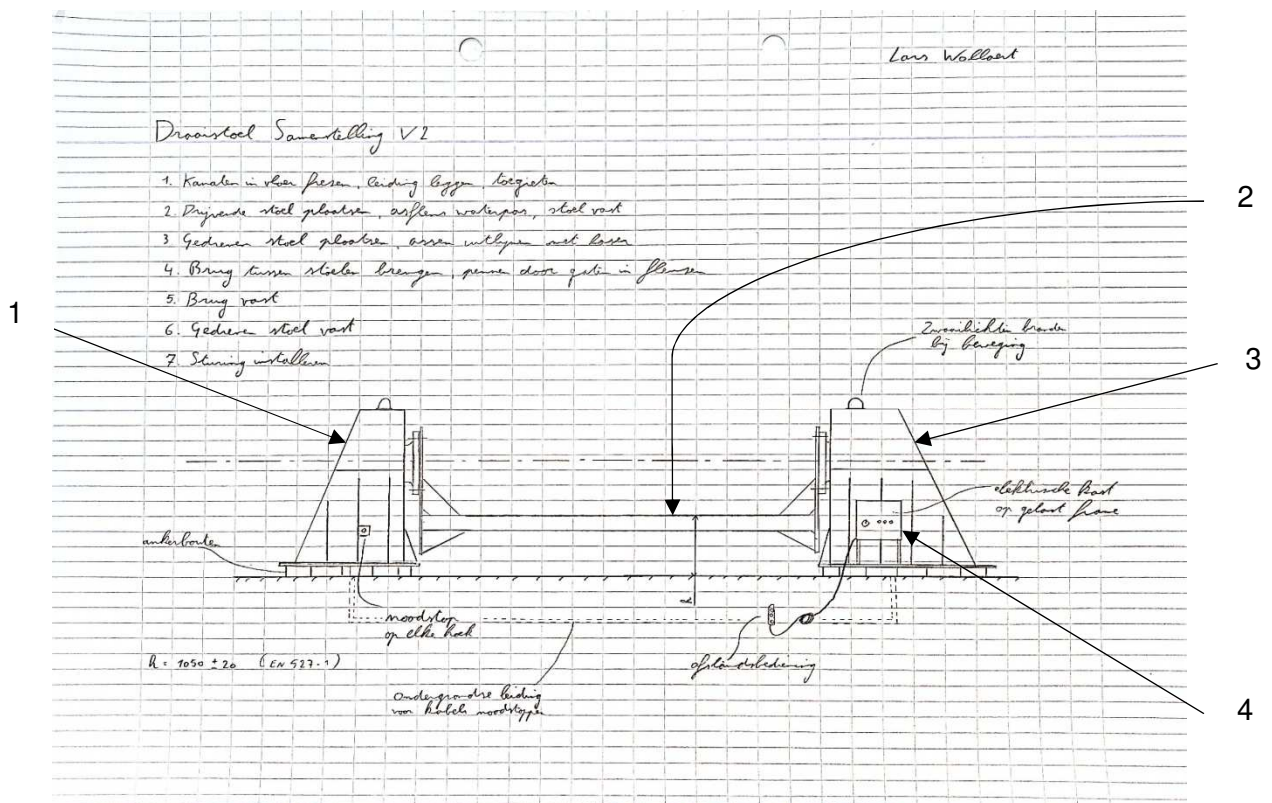 Lars Wollaert
Draaistoel Samenstelling V2
1. Kanalen in vloer frezen, leiding leggen, toegieten
2. Drijvende stoel plaatsen, asflens waterpas, stoel vast
3 Gedreven stoel plaatsen, assen uitlijnen met laser
4. Brug tussen stoelen brengen, pennen door gaten in flensen
5. Brug vast
6. Gedreven stoel vast
7 Sturing installeren
1
2
3
4
Zwaailichten branden
bij beweging
elektrische kast
op gelast frame
ankerbouten
noodstop
op elke hoek
h
h = 1050 ± 20 (EN 527-1)
afstandsbediening
Ondergrondse leiding
voor kabels noodstoppen